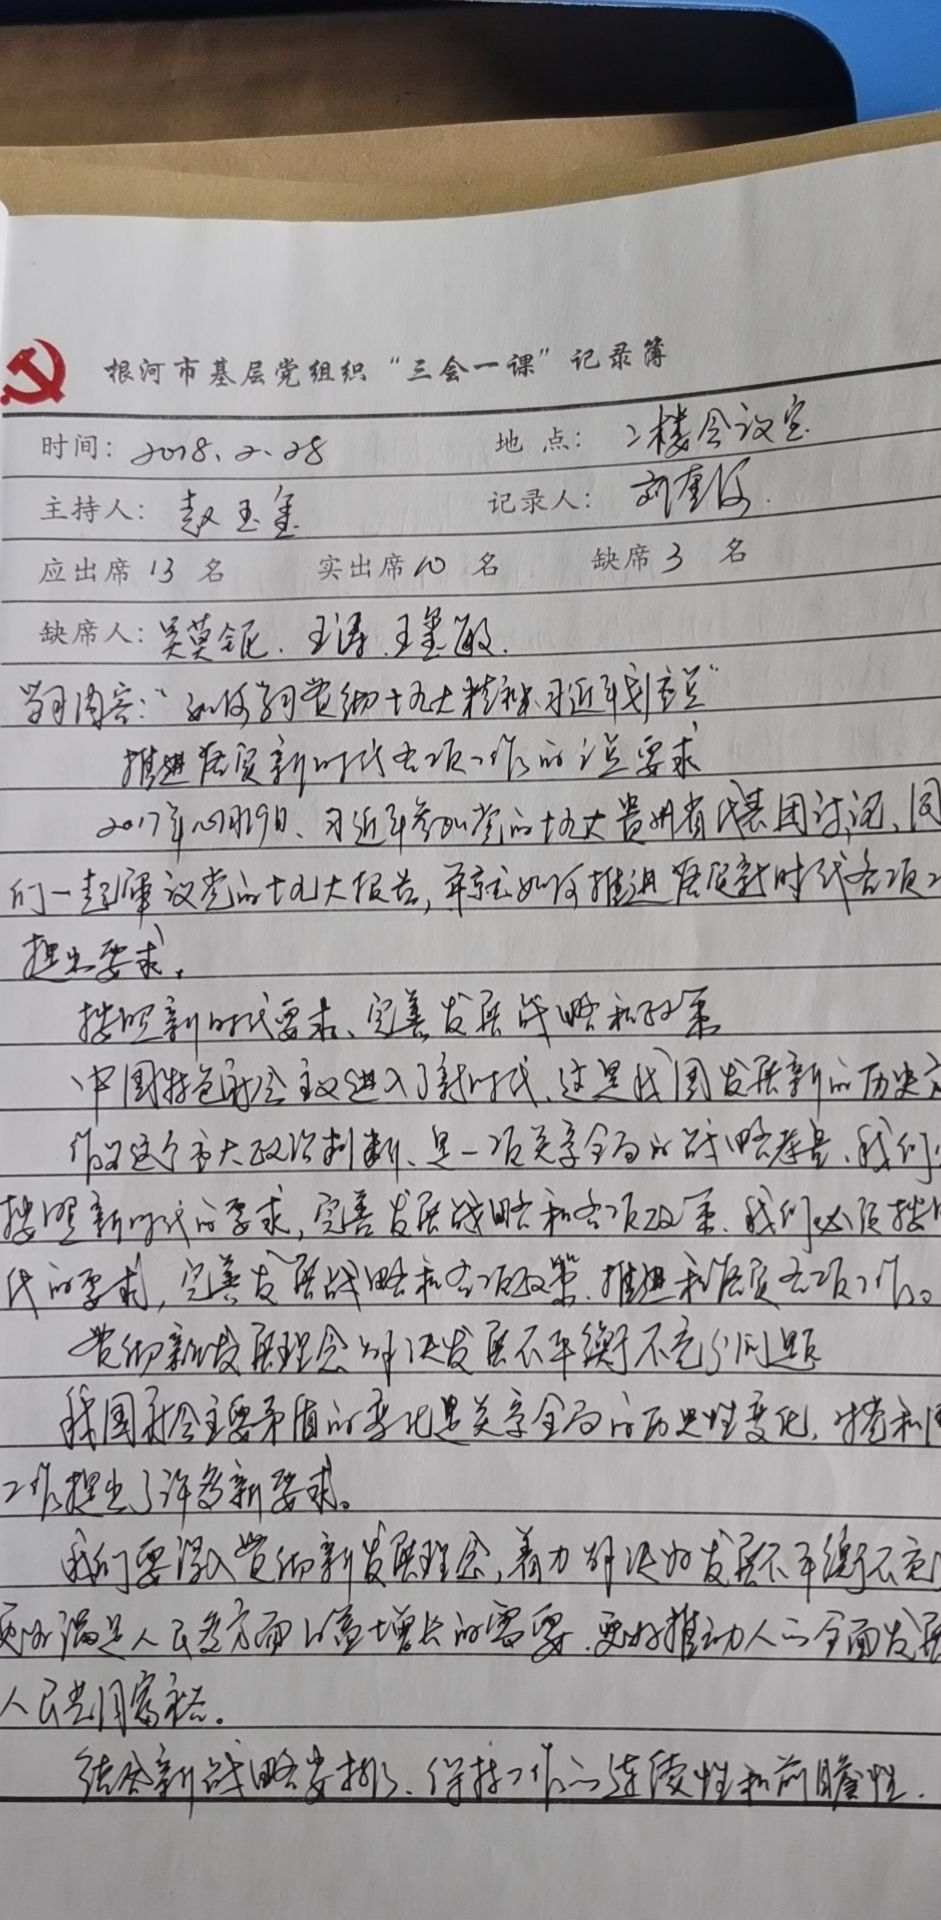 根河市基层党组织“三会一课”记录簿
时间：2018.2.28 地点：二楼会议室
主持人：赵玉玺 记录人：刘奎
应出席13名 实出席10名 缺席3名
缺席人：吴莫 王涛.王玺敏.
学习内容：“如何学习贯彻十九大精神.习近平划重点”
推进落实新时代各项工作的 要求
2017年10月19日、习近平参加党的十九大贵州省代表团讨论,同
们一起审议党的十九大报告,并就如何推进落实新时代各项工
提出要求.
按照新时代要求、完善发展战略和政策
中国特色社会主义进入了新时代、这是我国发展新的历史方
作出这个重大政治判断、是一项关系全局的战略考量、我们
按照新时代的要求,完善发展战略和各项政策.我们必须按照
代的要求,完善发展战略和各项政策.推进和落实各项工作。
贯彻新发展理念 解决发展不平衡不充分问题
我国社会主要矛盾的变化是关系全局的历史性变化,对党和国
工作提出了许多新要求。
我们要深入贯彻新发展理念,着力解决好发展不平衡不充分
更好满足人民各方面日益增长的需要.更好推动人的全面发展
人民共同富裕。
结合新战略安排、保持工作的连续性和前瞻性.